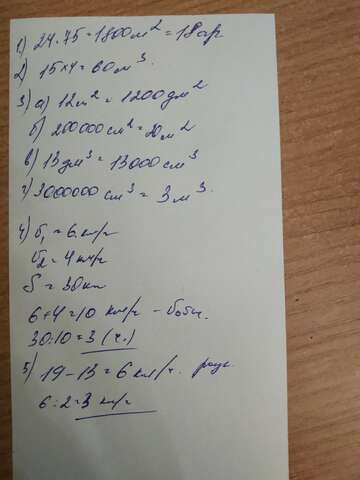 1) 24·75=1800 м²=18 ар
2) 15×4=60 м³.
3) а) 12 м²=1200 дм²
б) 200000 см²=20 м²
в) 13 дм³=13000 см³
г) 3000000 см³=3 м³.
4) υ₁=6 км/ч
υ₂=4 км/ч
S=30 км
6+4=10 км/ч -
30:10=3 (ч.)
5) 19-13=6 км/ч.
6:2=3 км/ч